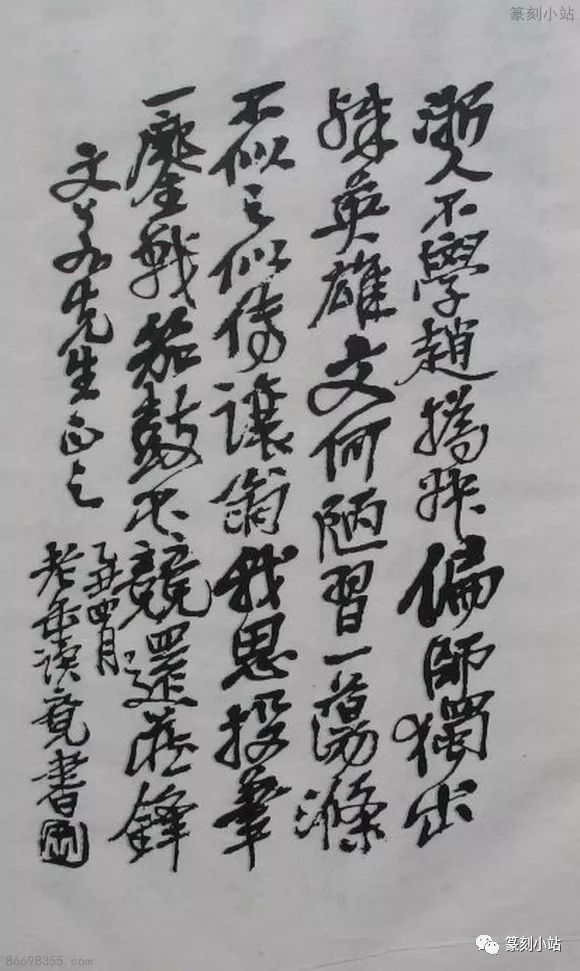 篆刻小站
浙人不學趙撝叔偏師獨出
殊英雄文何陋習一蕩滌
不似之似傳讓翁我思投筆
一鏖戰笳鼓不競還藏鋒
文先生正之
乙丑四月
老缶讀竟書
篆刻小站
86698355.com